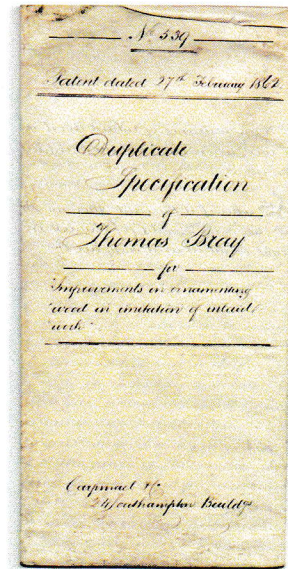 No 539
Patent dated 27th February 1862
Duplicate
Specification
of
Thomas Bray
for
"Improvements in ornamenting
wood in imitation of inlaid
work"
Carpmael &c
24 Southampton Buildgs